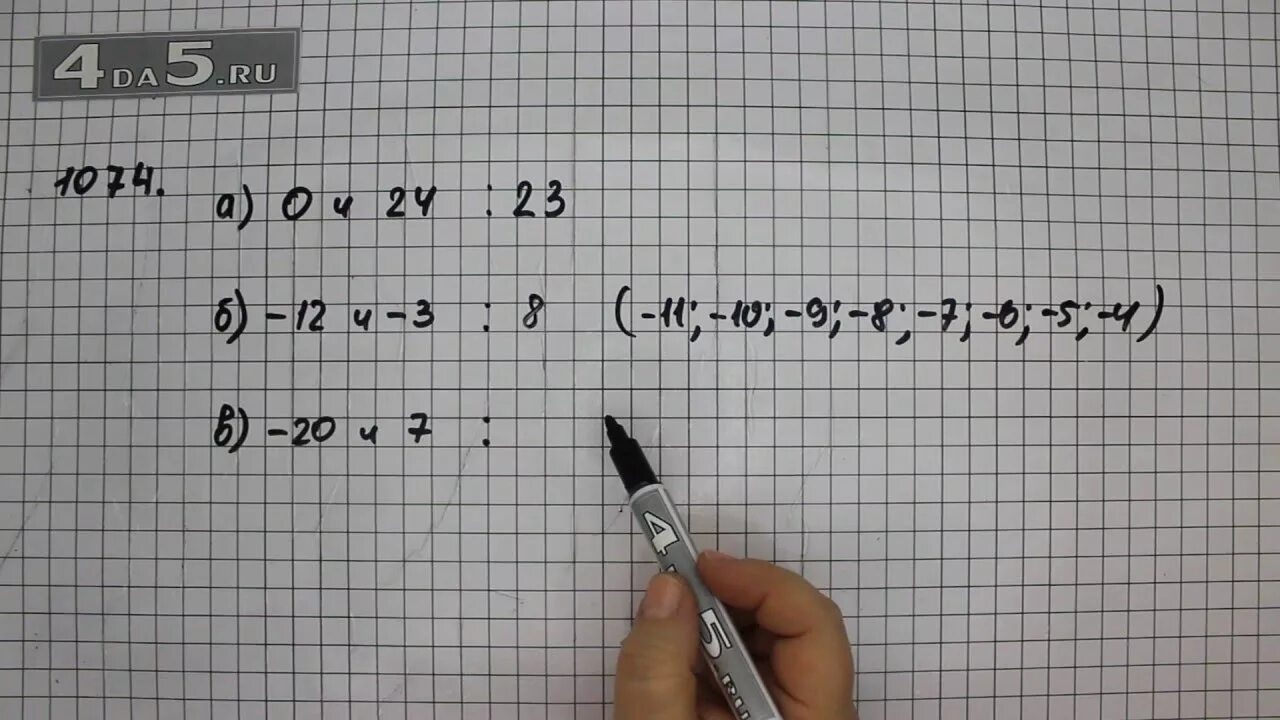 4DA5.RU
1074.
а) 0 и 24 : 23
б) -12 и -3 : 8 (-11; -10; -9; -8; -7; -6; -5; -4)
в) -20 и 7 :
4 5.RU